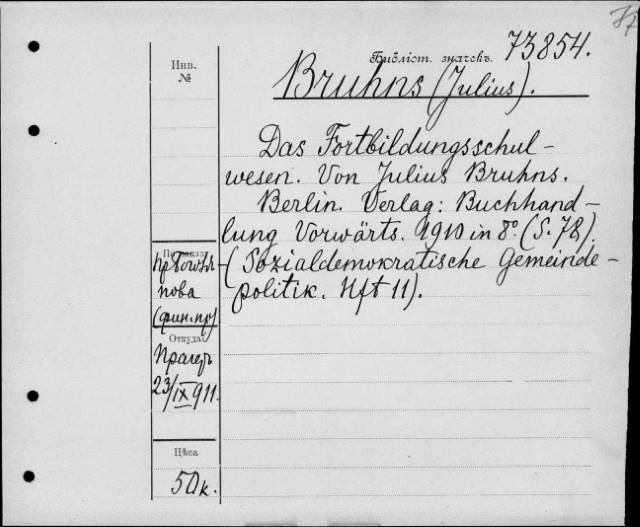 Библіот. значекъ. 73854.
Инв.
№
Bruhns (Julius).
Das Fortbildungsschul-
wesen. Von Julius Bruhns.
Berlin. Verlag: Buchhand-
lung Vorwärts. 1910 in 8° (S. 78).
(Sozialdemokratische Gemeinde-
politik. Hft 11).
пова
Откуда
23/IX 911.
Цѣна
50 к.